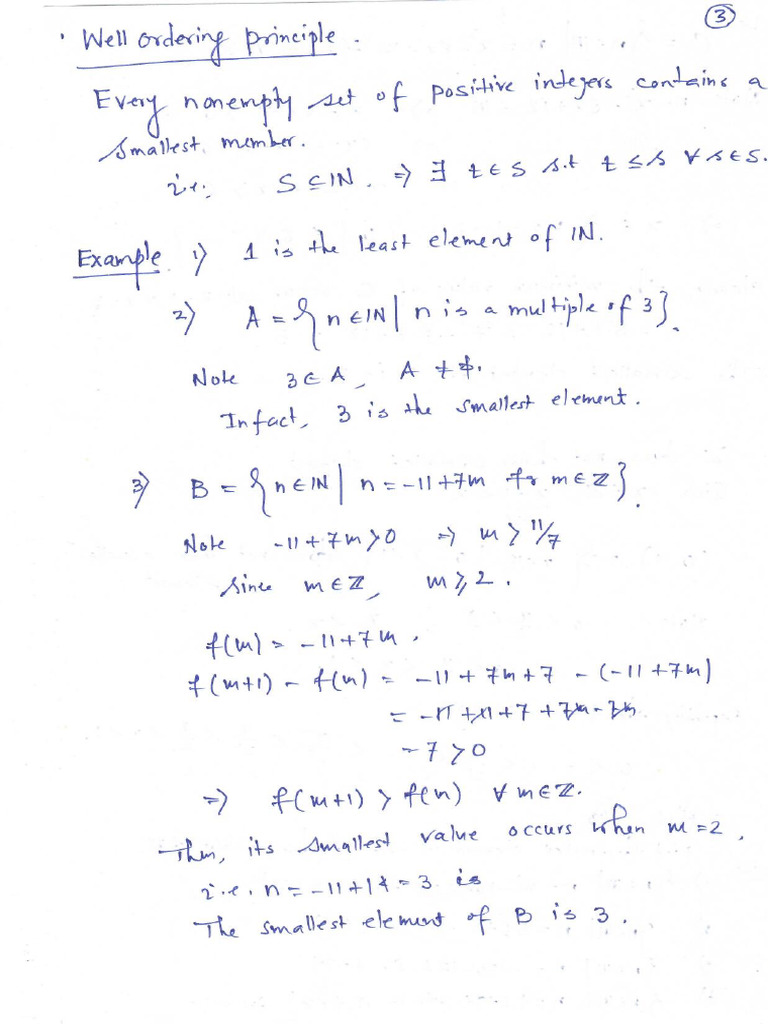 ③
· Well ordering principle.
Every nonempty set of positive integers contains a
smallest member.
i.e. S ⊆ IN. ⇒ ∃ t ∈ S s.t t ≤ s ∀ s ∈ S.
Example 1) 1 is the least element of IN.
2) A = { n ∈ IN | n is a multiple of 3}.
Note 3 ∈ A, A ≠ ϕ.
Infact, 3 is the smallest element.
3) B = { n ∈ IN | n = -11+7m for m ∈ ℤ}.
Note -11+7m>0 ⇒ m > 11/7
Since m ∈ ℤ, m ≥ 2.
f(m) = -11+7m.
f(m+1) - f(m) = -11 + 7m + 7 - (-11 + 7m)
= -11 + 11 + 7 + 7m - 7m
= 7 > 0
⇒ f(m+1) > f(m) ∀ m ∈ ℤ.
Then, its smallest value occurs when m = 2,
i.e. n = -11+14 = 3 is
The smallest element of B is 3.